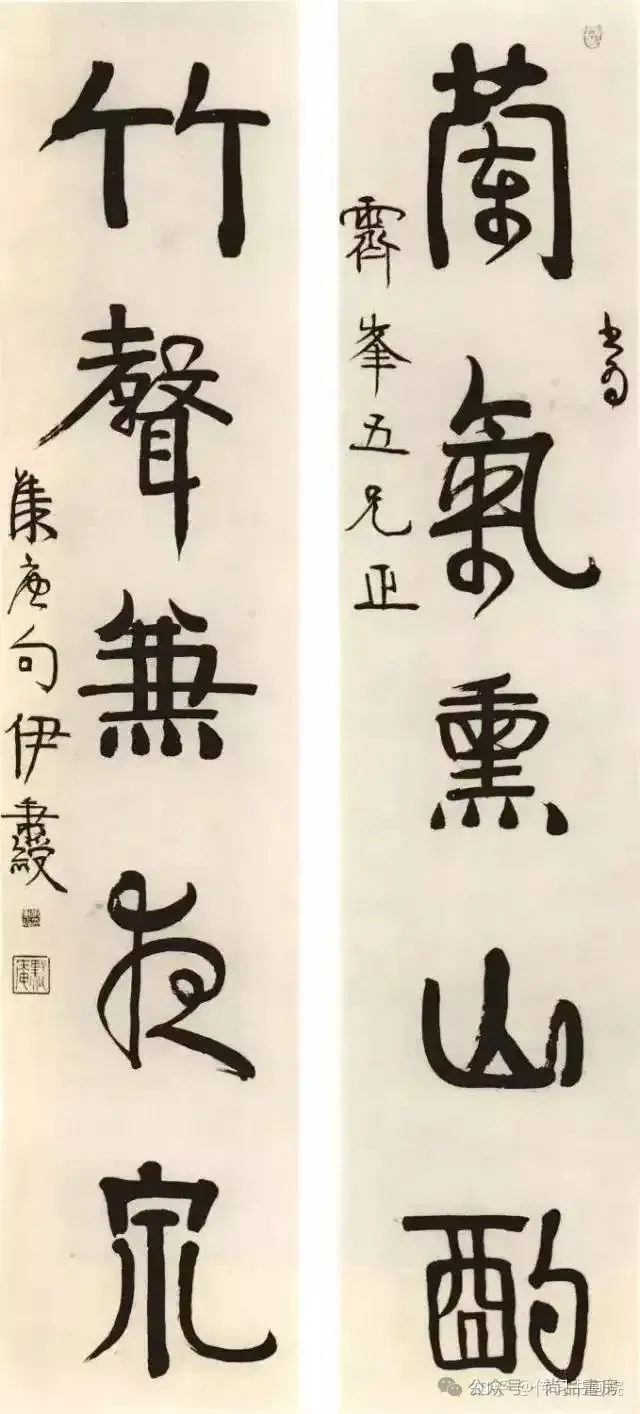 蘭氣熏山酌
書為
霽峯五兄正
竹聲兼夜泉
集唐句伊秉綬
公众号·尚品書房